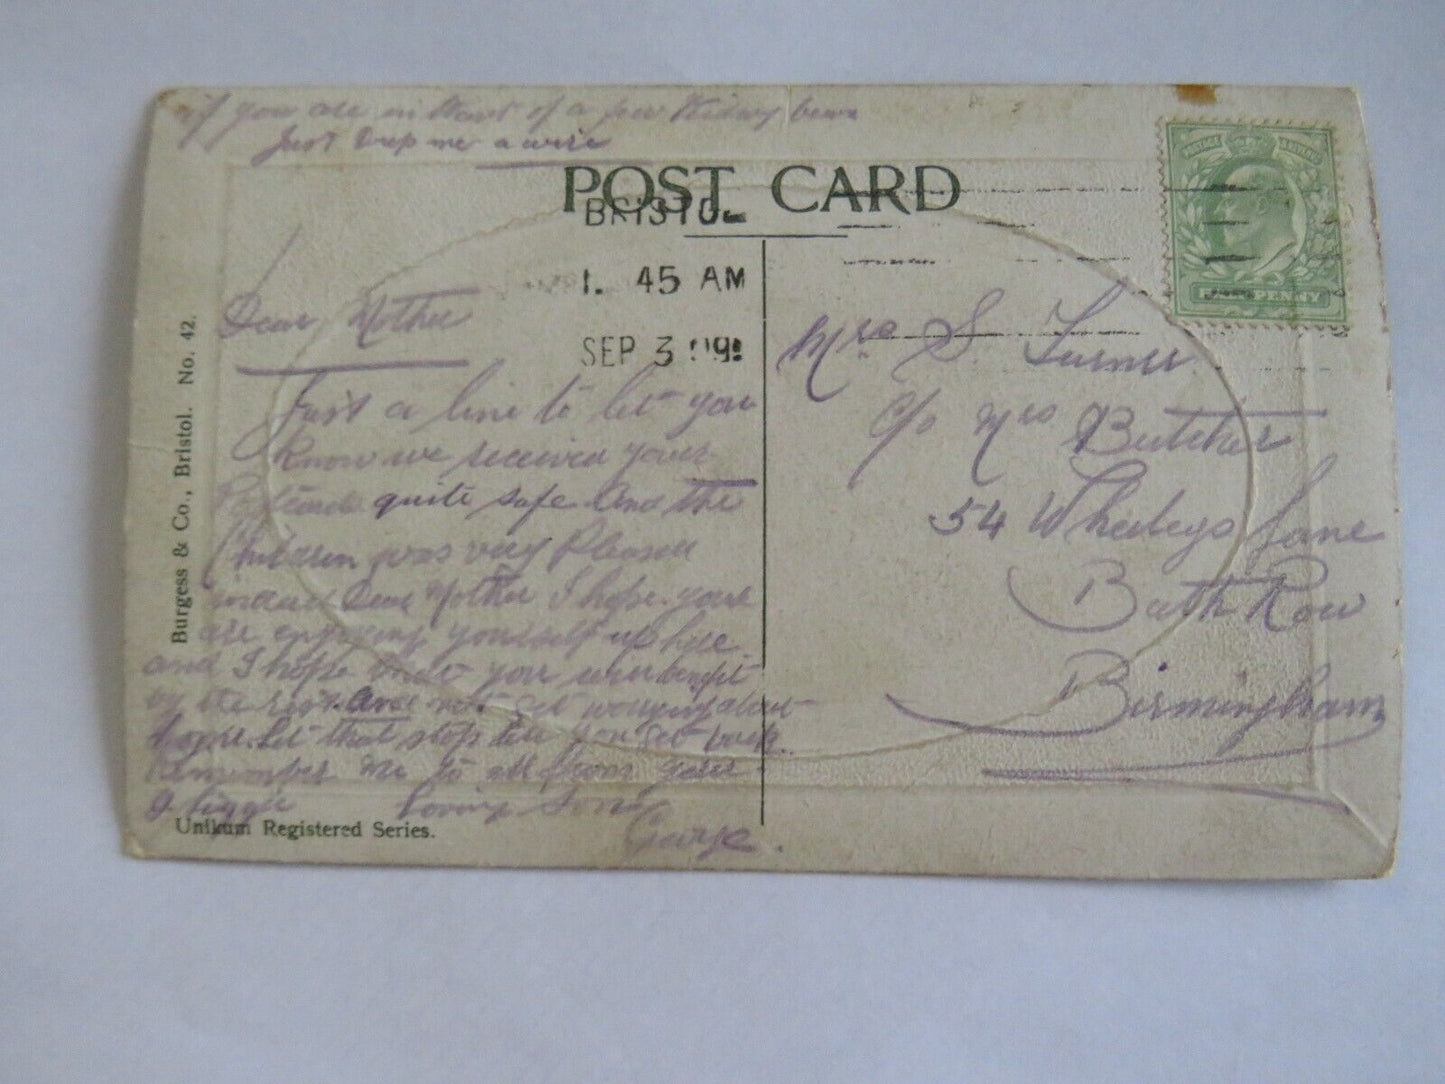 if you are in Want of a few Kidney beans
Just Drop me a wire
POST CARD
BRISTOL
1. 45 AM
SEP 3 09
POSTAGE REVENUE
PENNY
Dear Mother
Just a line to let you
know we received your
Postcard quite safe and the
Children was very Pleased
indeed Dear Mother I hope you
are enjoying yourself up here
and I hope that you will benefit
by the rest. And not get worrying about
home. Let that stop till you get back.
Remember me to all from your
Loving Son
George.
Mrs S. Turner
C/o Mrs Butcher
54 Wheeleys Lane
Bath Row
Birmingham
Burgess & Co., Bristol. No. 42.
Unikum Registered Series.